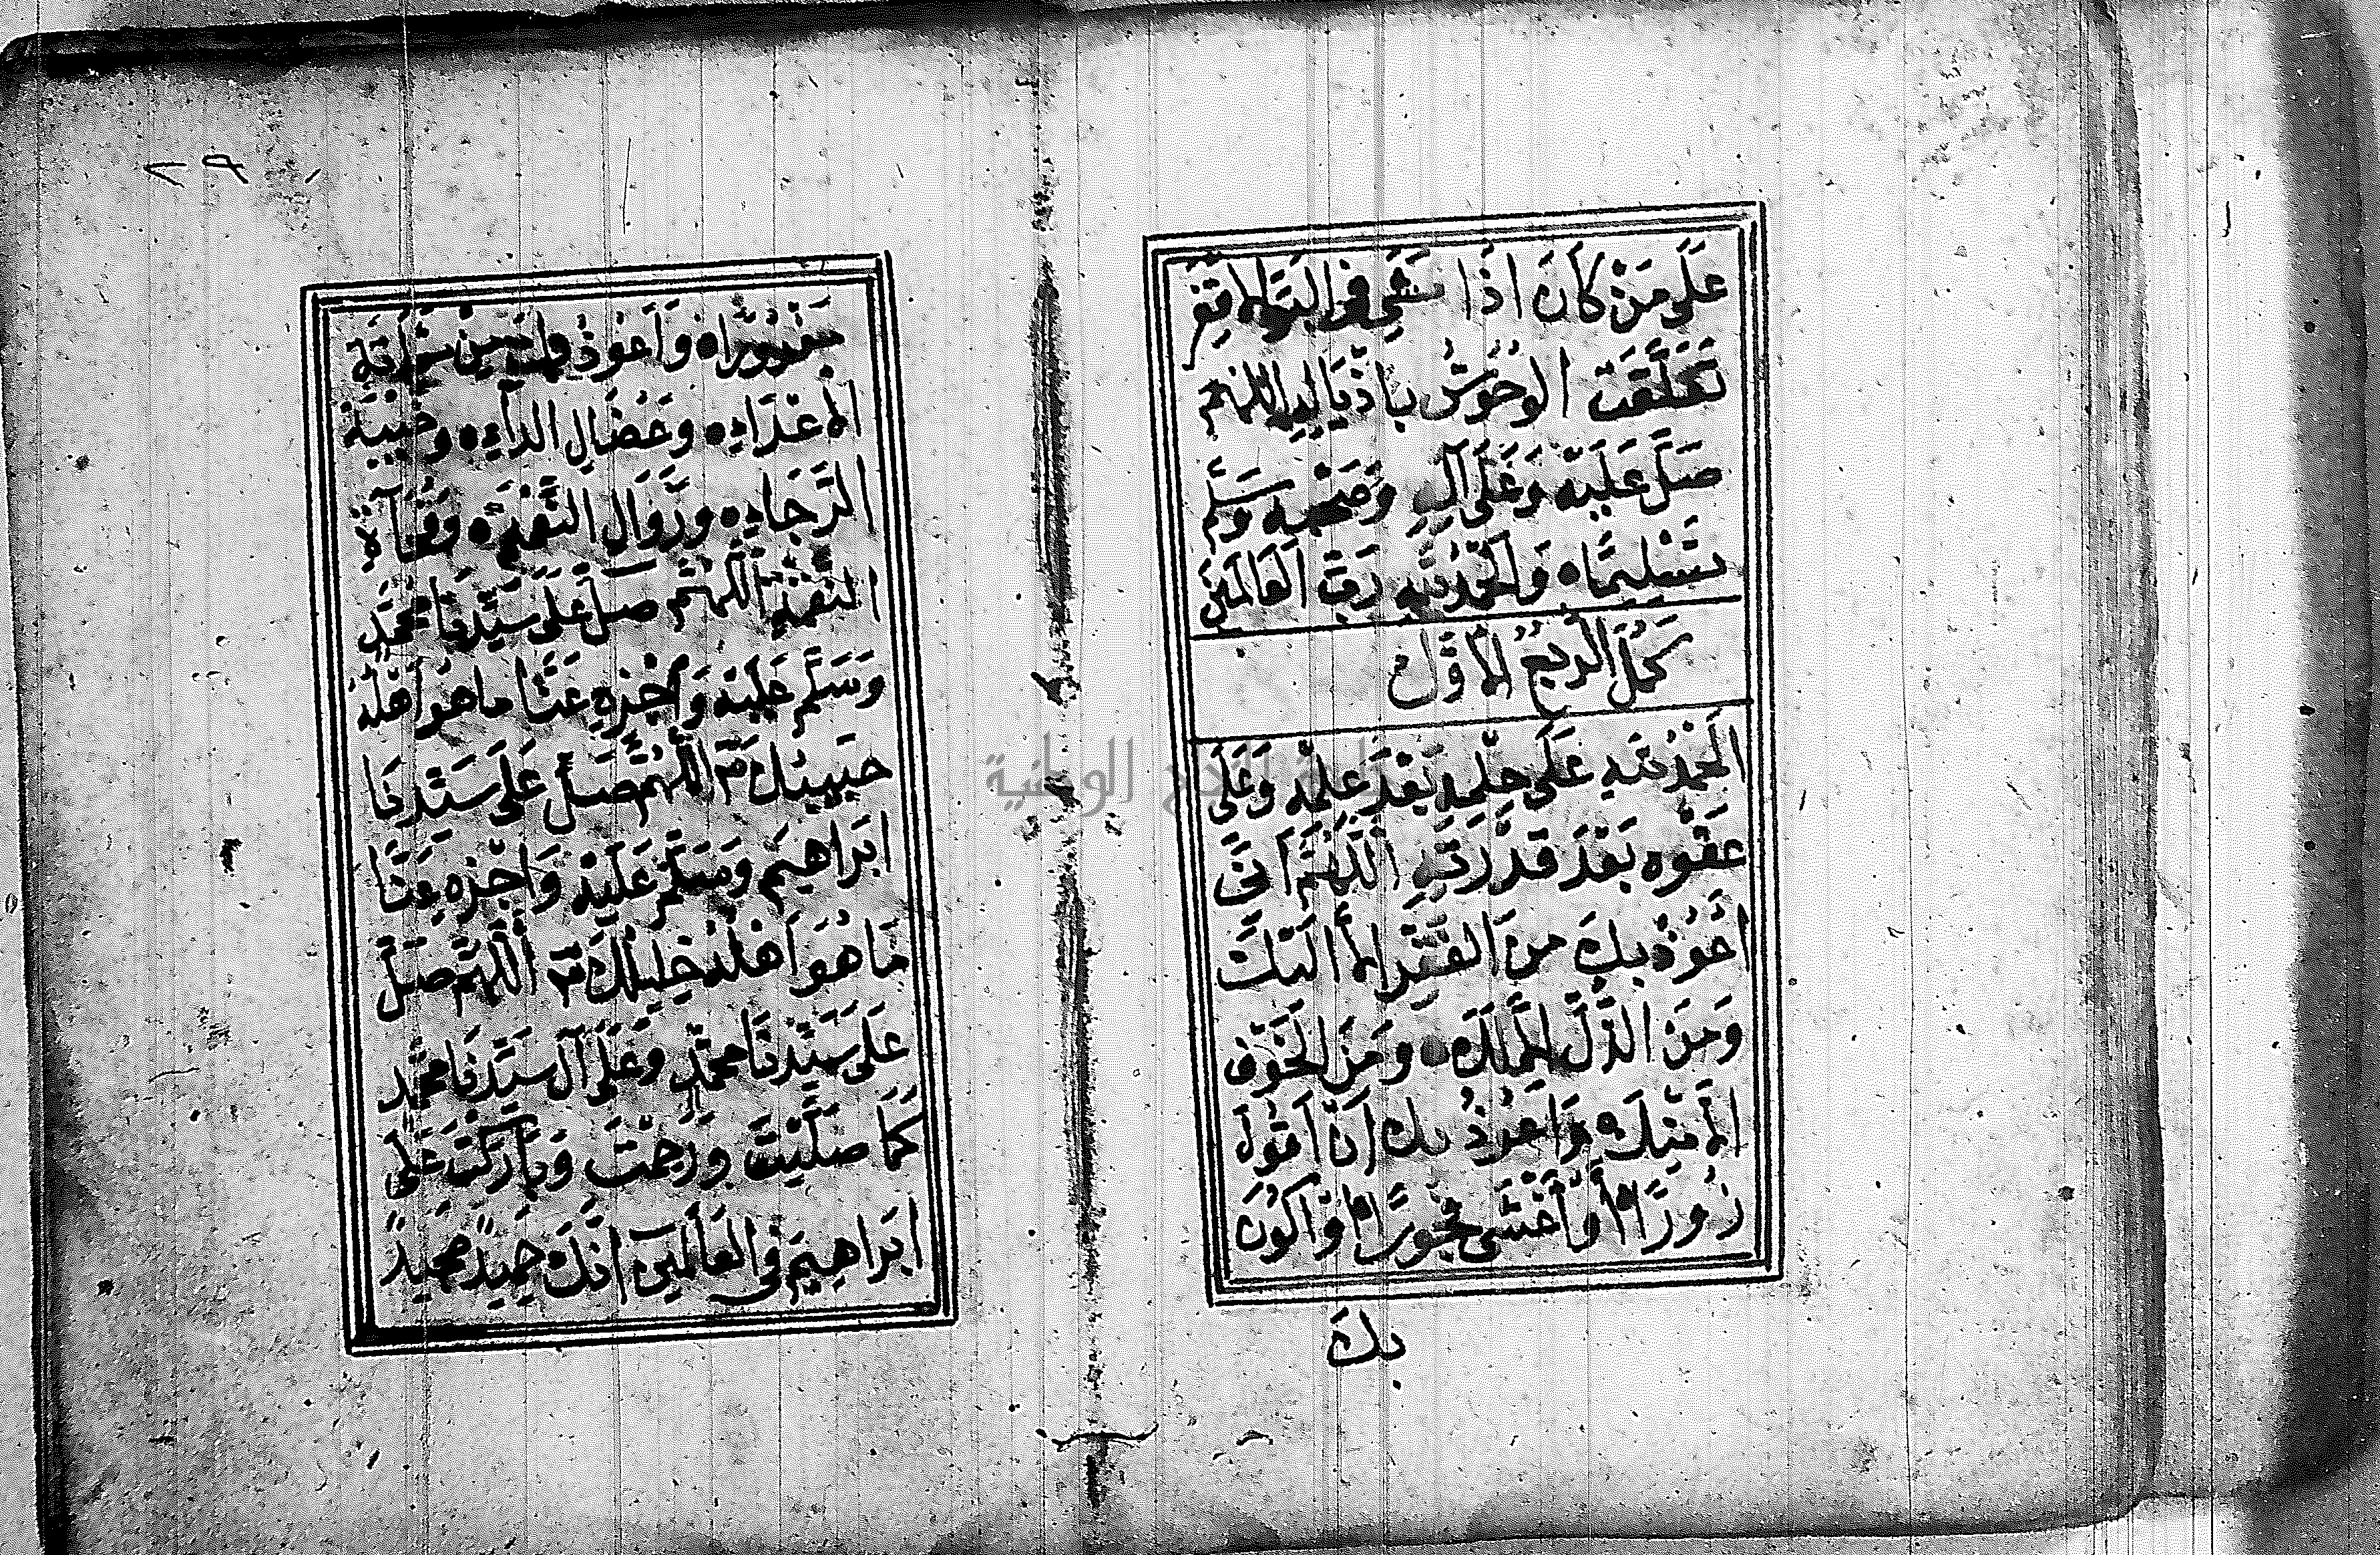 عَلَى مَنْ كَانَ اِذَا مَشَى فِي الْبَرِّ الاَقْفَرِ
تَعَلَّقَتِ الْوُحُوشُ بِاَذْيَالِهِ اللّٰهُمَّ
صَلِّ عَلَيْهِ وَعَلَى آلِهِ وَصَحْبِهِ وَسَلِّمْ
تَسْلِيمًا وَالْحَمْدُ لِلّٰهِ رَبِّ الْعَالَمِينَ
كَمُلَ الرُّبْعُ الاَوَّل
اَلْحَمْدُ لِلّٰهِ عَلَى حِلْمِهِ بَعْدَ عِلْمِهِ وَعَلَى
عَفْوِهِ بَعْدَ قُدْرَتِهِ اَللّٰهُمَّ اِنِّي
اَعُوذُ بِكَ مِنَ الْفَقْرِ اِلاَّ اِلَيْكَ
وَمِنَ الذُّلِّ اِلاَّ لَكَ وَمِنَ الْخَوْفِ
اِلاَّ مِنْكَ وَاَعُوذُ بِكَ اَنْ اَقُولَ
زُورًا اَوْ اَغْشَى فُجُورًا اَوْ اَكُونَ
بِكَ
٢٩
بِكَ مَغْرُورًا وَاَعُوذُ بِكَ مِنْ شَمَاتَةِ
الاَعْدَاءِ وَعُضَالِ الدَّاءِ وَخَيْبَةِ
الرَّجَاءِ وَزَوَالِ النِّعْمَةِ وَفُجَآءَةِ
النِّقْمَةِ اَللّٰهُمَّ صَلِّ عَلَى سَيِّدِنَا مُحَمَّدٍ
وَسَلِّمْ عَلَيْهِ وَاجْزِهِ عَنَّا مَا هُوَ اَهْلُهُ
حَبِيبُكَ اَللّٰهُمَّ صَلِّ عَلَى سَيِّدِنَا
اِبْرَاهِيمَ وَسَلِّمْ عَلَيْهِ وَاجْزِهِ عَنَّا
مَا هُوَ اَهْلُهُ خَلِيلُكَ اَللّٰهُمَّ صَلِّ
عَلَى سَيِّدِنَا مُحَمَّدٍ وَعَلَى آلِ سَيِّدِنَا مُحَمَّدٍ
كَمَا صَلَّيْتَ وَرَحِمْتَ وَبَارَكْتَ عَلَى
اِبْرَاهِيمَ فِي الْعَالَمِينَ اِنَّكَ حَمِيدٌ مَجِيدٌ